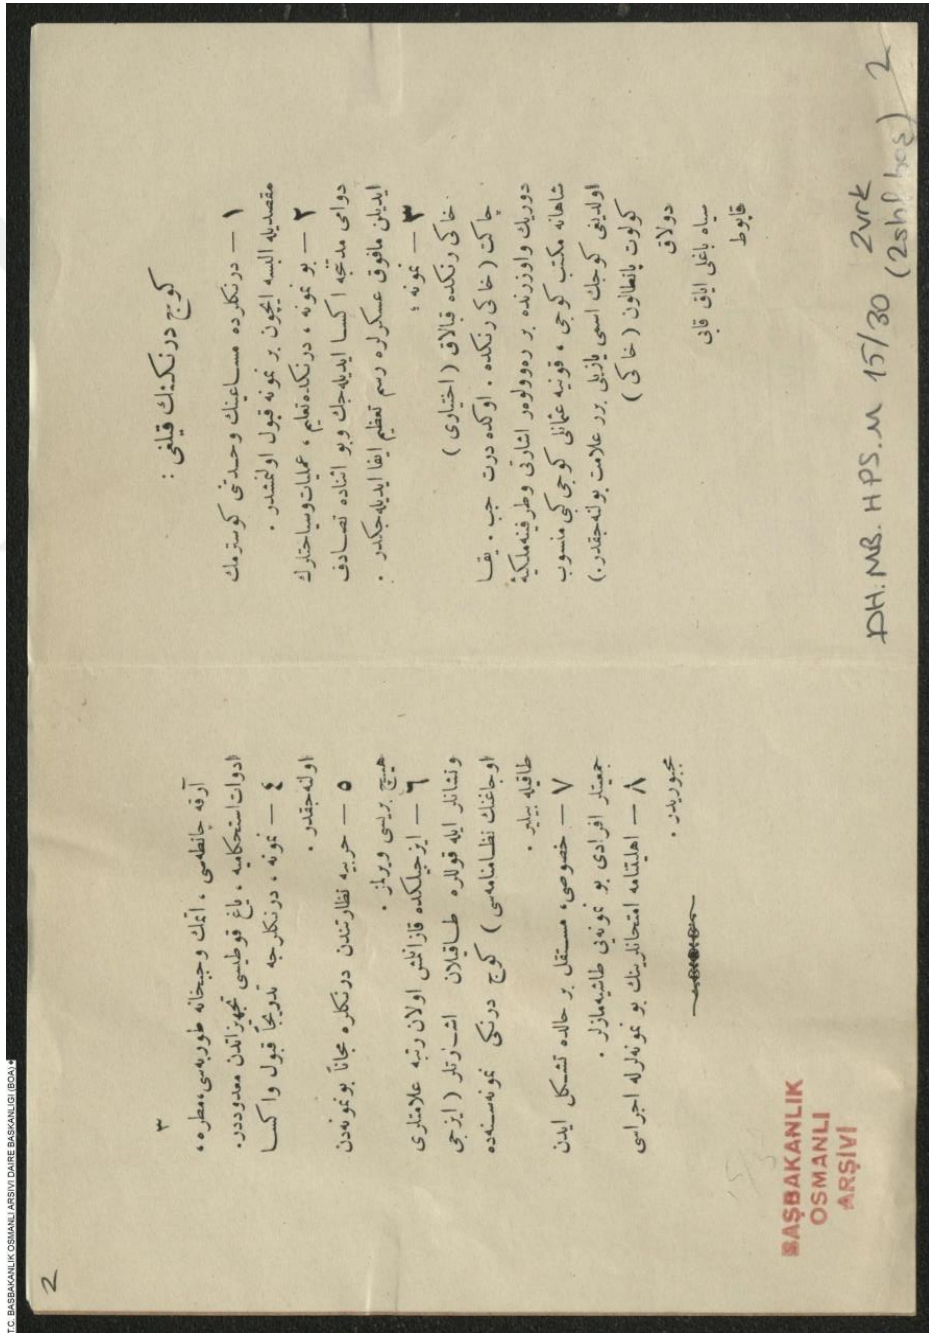 كوج درنكنك قيلغى :
١ — درنكلرده مساعينك وحدتنى كوسترمك
مقصديله البسه ايچون بر نمونه قبول اولنمشدر .
٢ — بو نمونه ، درنكده تعليم ، عمليات وسياحتلرك
دوامى مدتنجه اكسا ايديله‌جك وبو اثناده تصادف
ايديلن مافوق عسكرلره رسم تعظيم ايفا ايديله‌جكدر .
٣ — نمونه :
خاكى رنكده قبالاق ( اختيارى )
چاكت ( خاكى رنكده . اوكده درت جب . يقا
دوريك واوزرنده بر ره‌وولوه‌ر اشارتى وطرفينه ملكيهٔ
شاهانه مكتب كوجى ، قونيه عثمانلى كوجى كبى منسوب
اولدينى كوجك اسمى يازيلى برر علامت بولنه‌جقدر . )
كولوت پانطالون ( خاكى )
دولاق
سياه باغلى اياق قابى
قاپوط
٣
آرقه چانطه‌سى ، اتمك وجبخانه طوربه‌سى ، مطره ،
ادوات استحكاميه ، ياغ قوطيسى تجهيزاتدن معدوددر .
٤ — نمونه ، درنكلرجه تدريجاً قبول واكسا
اولنه‌جقدر .
٥ — حربيه نظارتندن درنكلره مجاناً بو نمونه‌دن
هيچ بريسى ويرلمز .
٦ — ايزجيلكده قازانلمش اولان رتبه علامتلرى
ونشانلر ايله قوللره طاقيلان اشارتلر ( ايزجى
اوجاغنك نظامنامه‌سى ) كوج درنكى نمونه‌سنده
طاقيله بيلير .
٧ — خصوصى ، مستقل بر حالده تشكل ايدن
جمعيتلر افرادى بو نمونه‌يى طاشيه‌مازلر .
٨ — اهليتنامه امتحانلرينك بو نمونه‌لرله اجراسى
مجبوريدر .
DH. MB. HPS. M 15/30 2vrk
(2shf boş) 2
2
BAŞBAKANLIK
OSMANLI
ARŞİVİ
T.C. BASBAKANLIK OSMANLI ARSIVI DAIRE BASKANLIGI (BOA)